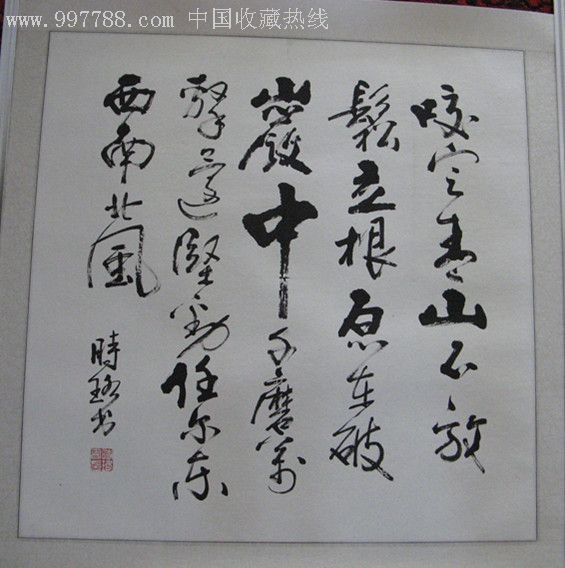 www.997788.com 中国收藏热线
咬定青山不放
鬆立根原在破
巖中千磨萬
擊還堅勁任尔东
西南北風
時
书